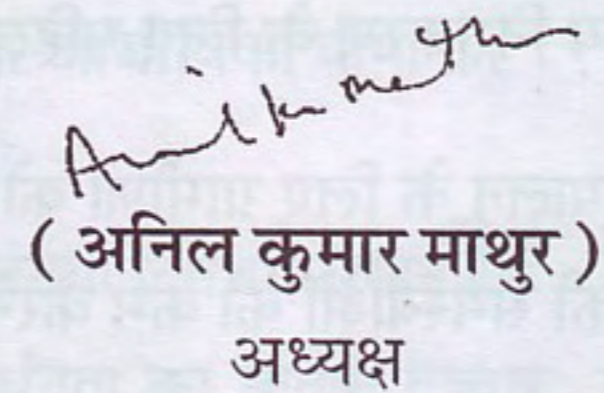 Anil k mathur
( अनिल कुमार माथुर )
अध्यक्ष